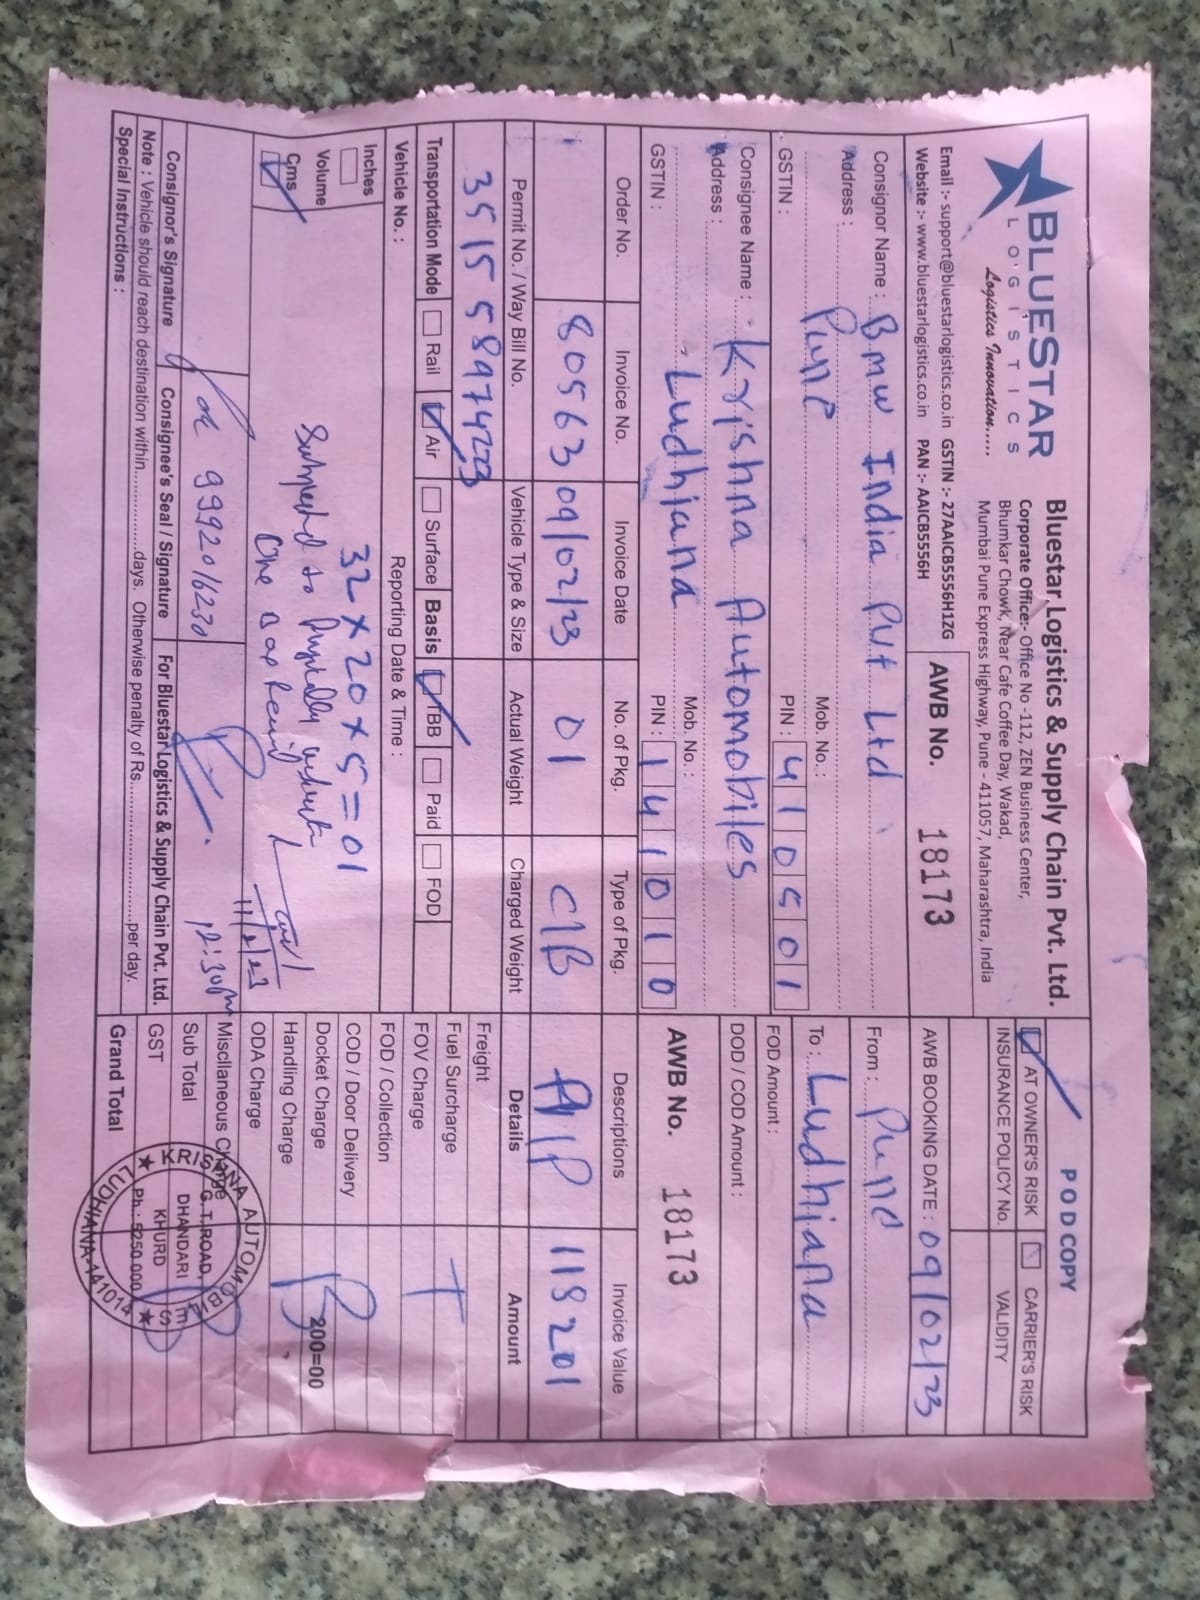 BLUESTAR
LOGISTICS
Logistics Innovation.....
Bluestar Logistics & Supply Chain Pvt. Ltd.
Corporate Office:- Office No -112, ZEN Business Center,
Bhumkar Chowk, Near Cafe Coffee Day, Wakad,
Mumbai Pune Express Highway, Pune - 411057, Maharashtra, India
POD COPY
AT OWNER'S RISK CARRIER'S RISK
INSURANCE POLICY No. VALIDITY
Email :- support@bluestarlogistics.co.in GSTIN :- 27AAICB5556H1ZG
Website :- www.bluestarlogistics.co.in PAN :- AAICB5556H
AWB No. 18173
AWB BOOKING DATE : 09/02/23
Consignor Name : Bmw India Pvt Ltd
Address : Pune
Mob. No. :
GSTIN : PIN : 410501
From : Pune
To : Ludhiana
FOD Amount :
Consignee Name : Krishna Automobiles
Address :
Ludhiana Mob. No. :
GSTIN : PIN : 141010
DOD / COD Amount :
AWB No. 18173
Order No. Invoice No. Invoice Date No. of Pkg. Type of Pkg. Descriptions Invoice Value
80563 09/02/23 01 C/B A/P 118201
Permit No. / Way Bill No. Vehicle Type & Size Actual Weight Charged Weight Details Amount
351558974223
Freight
Fuel Surcharge
Transportation Mode Rail Air Surface Basis TBB Paid FOD
FOV Charge
Vehicle No. : Reporting Date & Time :
FOD / Collection
Inches
Volume
Cms
32 x 20 x 5 = 01
Subject to
One Box
11/2/23
COD / Door Delivery
Docket Charge 200=00
Handling Charge
ODA Charge
Miscllaneous Charge
9992016230
12:30pm
Sub Total
Consignor's Signature Consignee's Seal / Signature For Bluestar Logistics & Supply Chain Pvt. Ltd.
GST
Note : Vehicle should reach destination within..............days. Otherwise penalty of Rs.......................per day.
Special Instructions :
Grand Total
KRISHNA AUTOMOBILES
G.T.ROAD,
DHANDARI
KHURD
Ph.: 5250 000
LUDHIANA-141014